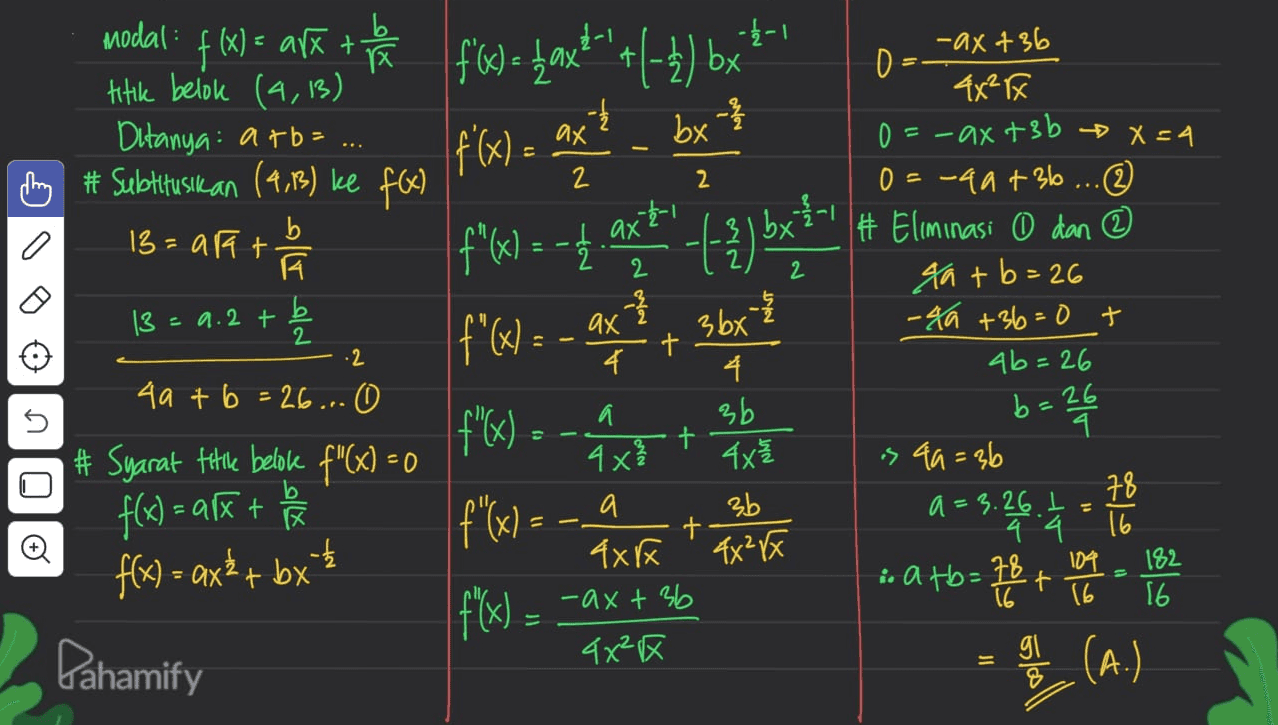 modal: f(x) = a√x + b/√x
titik belok (4, 13)
Ditanya: a + b = ...
# Substitusikan (4,13) ke f(x)
13 = a√4 + b/√4
13 = a.2 + b/2
.2
4a + b = 26 ... ①
# Syarat titik belok f"(x) = 0
f(x) = a√x + b/√x
f(x) = ax^½ + bx^-½
Pahamify
f'(x) = ½ax^(½-1) + (-½) bx^(-½-1)
f'(x) = ax^-½/2 - bx^-3/2/2
f"(x) = -½ . ax^(-½-1)/2 - (-3/2) bx^(-3/2-1)/2
f"(x) = - ax^-3/2/4 + 3bx^-5/2/4
f"(x) = - a/4x^3/2 + 3b/4x^5/2
f"(x) = - a/4x√x + 3b/4x²√x
f"(x) = -ax + 3b/4x²√x
0 = -ax + 3b/4x²√x
0 = -ax + 3b → x = 4
0 = -4a + 3b ... ②
# Eliminasi ① dan ②
4a + b = 26
-4a + 3b = 0 +
4b = 26
b = 26/4
⇒ 4a = 3b
a = 3.26/4 . 1/4 = 78/16
∴ a + b = 78/16 + 104/16 = 182/16
= 91/8 (A.)